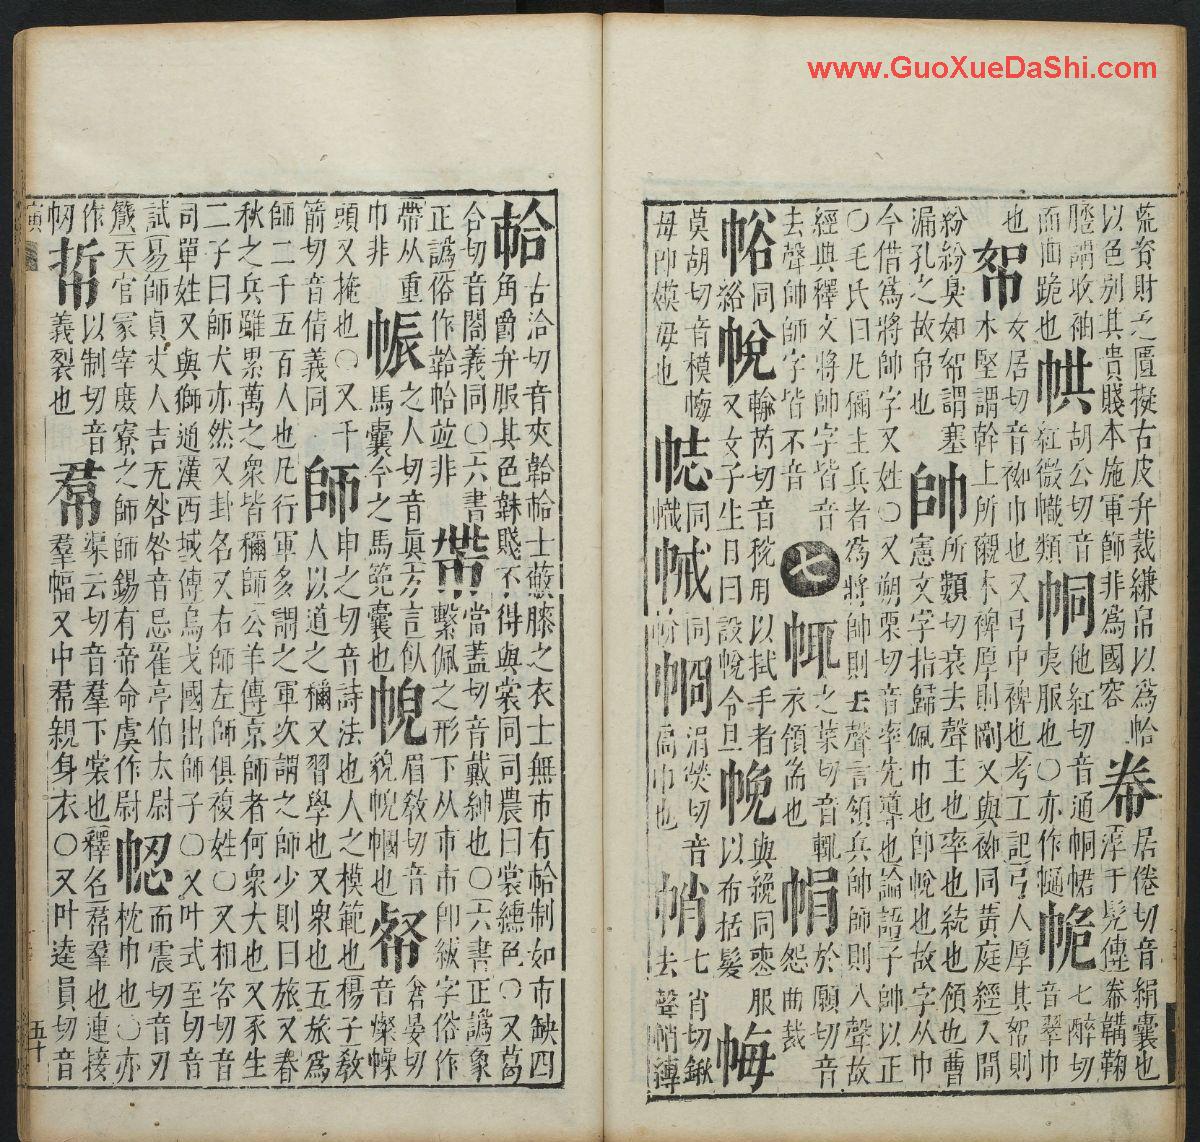 www.GuoXueDaShi.com
荒資財乏匱擬古皮弁裁縑帛以爲帢
以色別其貴賤本施軍師非爲國容 帣 居倦切音絹囊也 淳于髡傳帣鞲鞠
䠆謂收袖 胡公切音 他紅切音通㠉㡓 七醉切
而曲跪也 㡃 紅徽幟類 㠉 夷服也〇亦作𢅙 㡋 音翠巾
也 帤 女居切音袽巾也又弓中裨也考工記弓人厚其帤則
木堅謂幹上所襯木裨厚則剛又與袽同黃庭經人間
紛紛臭如帤謂塞 帥 所類切衰去聲主也率也統也領也曹
漏孔之故帛也 憲文字指歸佩巾也卽帨也故字从巾
今借爲將帥字又姓〇又朔栗切音率先導也論語子帥以正
〇毛氏曰凡稱主兵者爲將帥則去聲言領兵帥師則入聲故
經典釋文將帥字皆音 七 㡇 之葉切音輒 帩 於願切音
去聲帥師字皆不音 衣領耑也 怨曲裁
㡉 同綌 帨 輸芮切音稅用以拭手者 㡈 與絻同喪服
又女子生日曰設帨令旦 以布括髮 㡔
莫胡切音模㡔 㡏 同幟 㡎 同㠸 㡊 涓熒切音 帩 七肖切鍬
母卽嫫母也 高巾也 去聲帩縳
帢 古洽切音夾韐帢士蔽膝之衣士無巿有帢制如巿缺四
角爵弁服其色韎賤不得與裳同司農曰裳纁色〇又葛
合切音閤義同〇六書 帶 當蓋切音戴紳也〇六書正譌象
正譌俗作韐帢竝非 繫佩之形下从巿巿卽紱字俗作
帶从重 帪 之人切音眞方言飤 㡌 眉敎切音 㡜 倉晏切
巾非 馬橐今之馬篼囊也 貌㡌幗也 音燦幧
頭又掩也〇又千 師 申之切音詩法也人之模範也楊子敎
箭切音倩義同 人以道之稱又習學也又衆也五旅爲
師二千五百人也凡行軍多謂之軍次謂之師少則曰旅又春
秋之兵雖累萬之衆皆稱師公羊傳京師者何衆大也又豕生
二子曰師犬亦然又卦名又右師左師俱複姓〇又相咨切音
司單姓又與獅通漢西域傳烏戈國出師子〇又叶式至切音
試易師貞丈人吉无咎咎音忌崔亭伯太尉 㡅 而震切音刃
箴天官冢宰庶寮之師師錫有帝命虞作尉 枕巾也〇亦
作 㡐 以制切音 帬 渠云切音羣下裳也釋名帬羣也連接
㠴 義裂也 羣幅又中帬親身衣〇又叶逵員切音
寅
五十